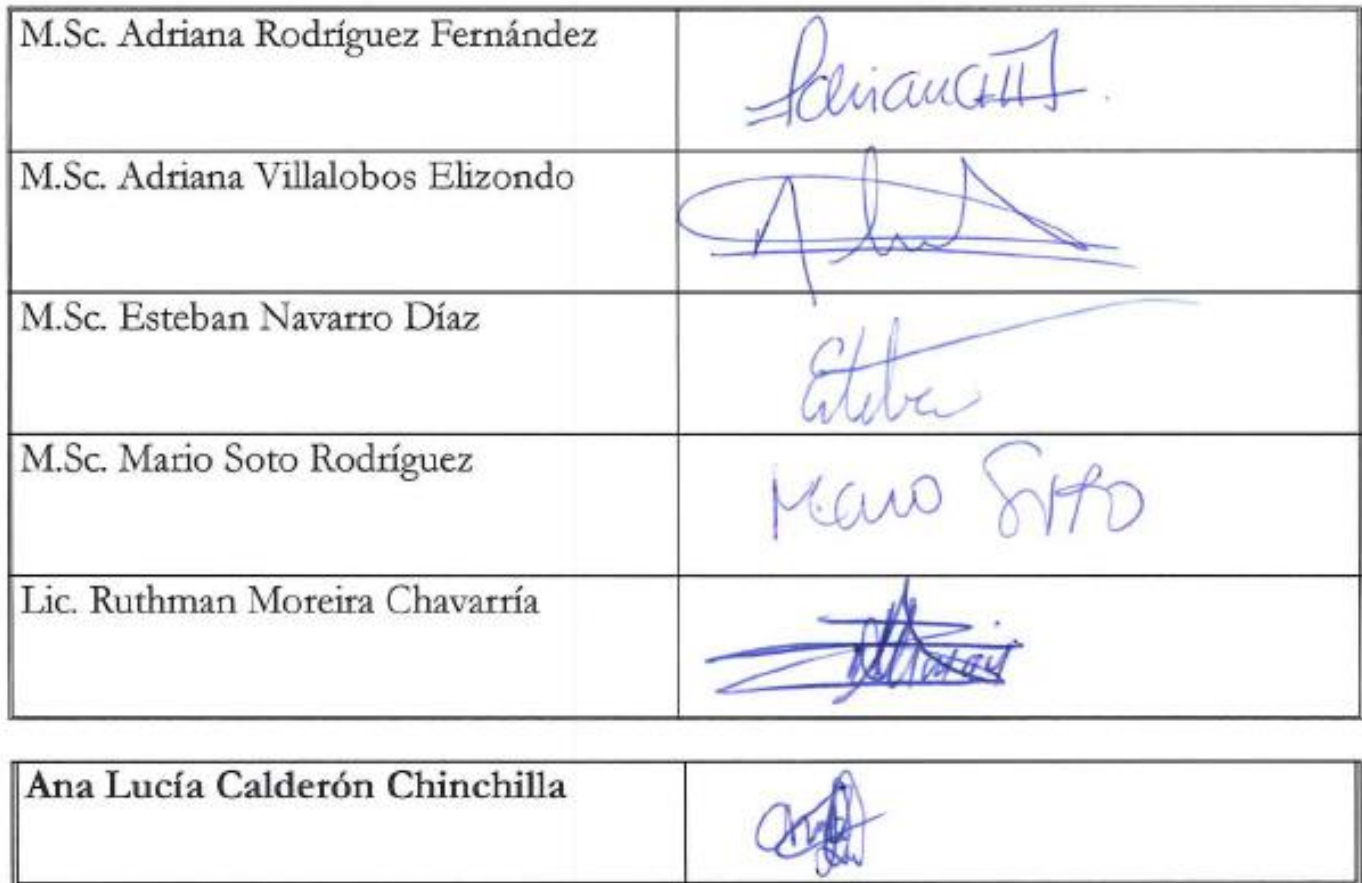 M.Sc. Adriana Rodríguez Fernández
M.Sc. Adriana Villalobos Elizondo
M.Sc. Esteban Navarro Díaz
M.Sc. Mario Soto Rodríguez
Mario Soto
Lic. Ruthman Moreira Chavarría
Ana Lucía Calderón Chinchilla